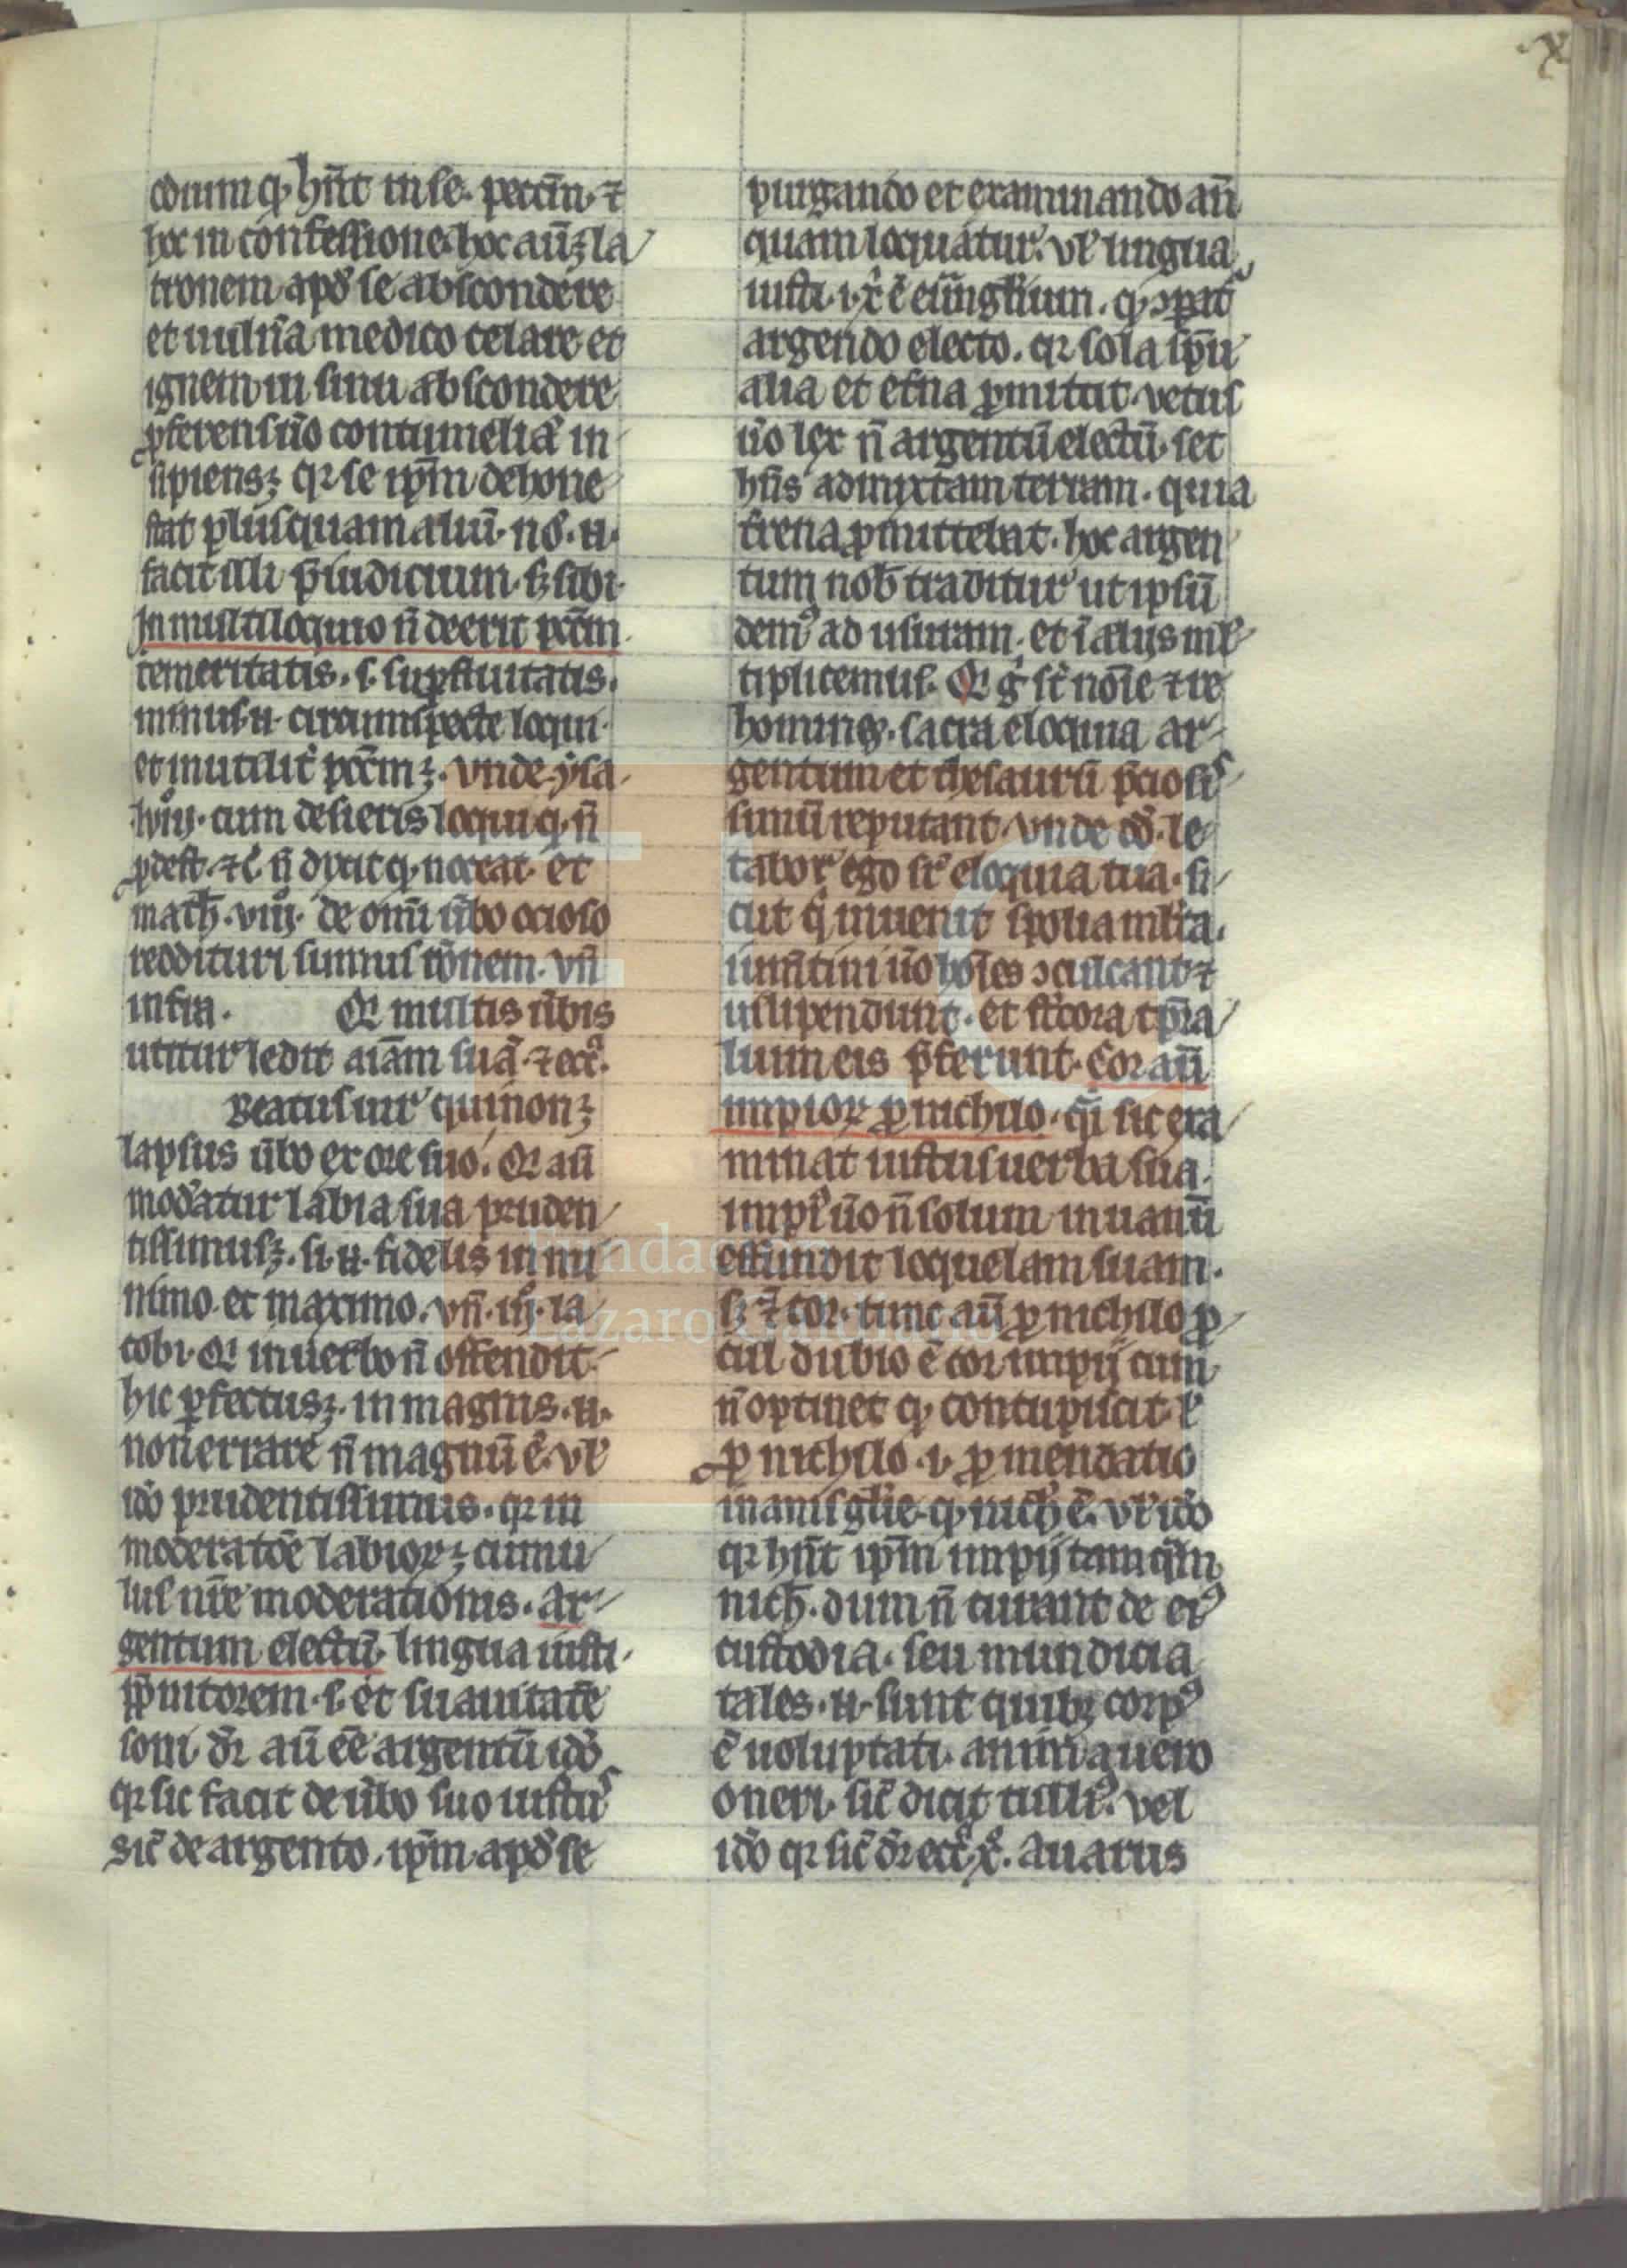 x
odium qͥ hn̄t in se. pecctm̄. ⁊
hoc in confessione. hoc aūꝫ la
tronem apđ se abscondere
et uuln̄a medico celare et
ignem in sinu abscondere
ꝓferens u̅o contumeliā in
sipiensꝫ qꝛ se ip̄m dehone
stat plusquam aliū. no̅. n̅.
facit illi p̄iudicium. sꝫ sibi.
In multiloquio n̄ deerit pcc̄m
temeritatis. s. suꝑfluitatis.
minus. n̅. circumspecte loqui.
et inutilit̓ pcc̄mꝫ. vnde ysa
lviij. cum desieris loqui qͥ n̄
ꝓdest. ⁊c̄. n̄ dyxit qͥ noceat. et
math̄. viij. de om̄i u̅bo ocioso
reddituri sumus rōnem. vn̄
infra. Qͥ multis u̅bis
utitur ledit aīam suā. ⁊ eccͣ.
Beatus uir qui nonꝫ
lapsus u̅bo ex ore suo. Qͥ aū
mod̓atur labia sua pruden
tissimusꝫ. si. n̅. fidelis in mi
nimo et maximo. vn̄. iij. Ia
cobi. Qͥ in uerbo n̄ offendit
hic ꝑfectusꝫ. in magnis. n̅.
non errare n̄ magnū ē. vel̄
iđo prudentissimus. qꝛ in
moderatōe labioꝝꝫ cumu
lus nr̄e moderationis. Ar
gentum electū lingua iusti.
ꝓpt̓ nitorem. s. et suauitatē
soni. dr̄ aū eē argentū iđo
qꝛ sic facit de u̅bo suo iustus
sic̄ de argento. ip̄m apđ se
purgando et examinando an̄
quam loquatur. vel̄ lingua
iusti. i. xͥ ē euūgl̄ium. qͥ ꝯꝑatͬ
argendo electo. qꝛ sola sp̄u
alia et etn̄a ꝓmittit. vetus
u̅o lex n̄ argentū electū. set
hn̄s admixtam terram. quia
trena ꝓmittebat. hoc argen
tum nob̄ traditur ut ipsū
demꝰ ad usuram. et ī alijs ml̄
tiplicemus. Qͥ gͦ st̄ noīe ⁊ re
homines. sacra eloquia ar
gentum et thesaurū p̄ciosiſ
simū reputant. vnde dđ. le
tabor ego sr̄ eloquia tua. si
cut qͥ inuenit spolia ml̄ta.
iumētini u̅o hoīes ꝯculcant ⁊
uilipendunt. et st̓cora tp̄a
lium eis p̄ferunt. Cor aū
impioꝝ ꝓ nichilo. qͥ sic exa
minat iustus uerba sua.
impiꝰ u̅o n̄ solum in uanū
effundit loquelam suam.
sꝫ ⁊ cor. tunc aū ꝓ nichilo ꝓ
cul dubio ē cor impij cum
n̄ optinet qͥ concupiscit. l̄
ꝓ nichilo. i. ꝓ mendatio
inanis gl̄ie. qͥ nich̄ ē. vel̄ iđo
qꝛ hn̄t ip̄m impij tamqͣm
nich̄. dum n̄ curant de eiꝰ
custodia. seu mundicia
tales. n̅. sunt quibꝫ corpꝰ
ē uoluptati. anima uero
oneri. sic̄ dicit tulliꝰ. vel
iđo qꝛ sic̄ dr̄ eccͥ. xͦ. Auarus
Fundación
Lázaro Galdiano